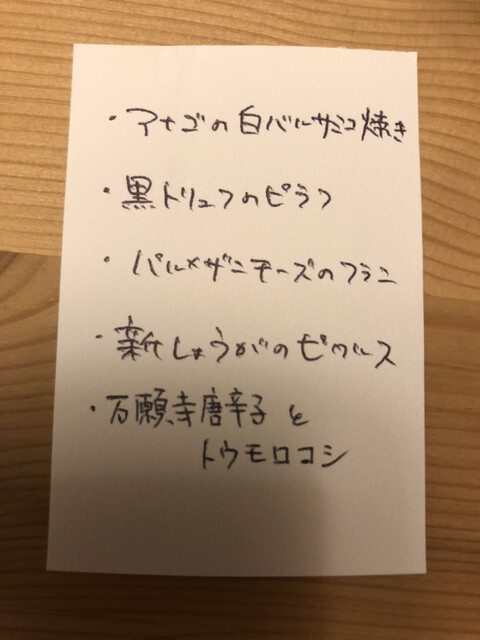 ・アナゴの白バルサミコ焼き
・黒トリュフのピラフ
・パルメザンチーズのフラン
・新しょうがのピクルス
・万願寺唐辛子と
トウモロコシ